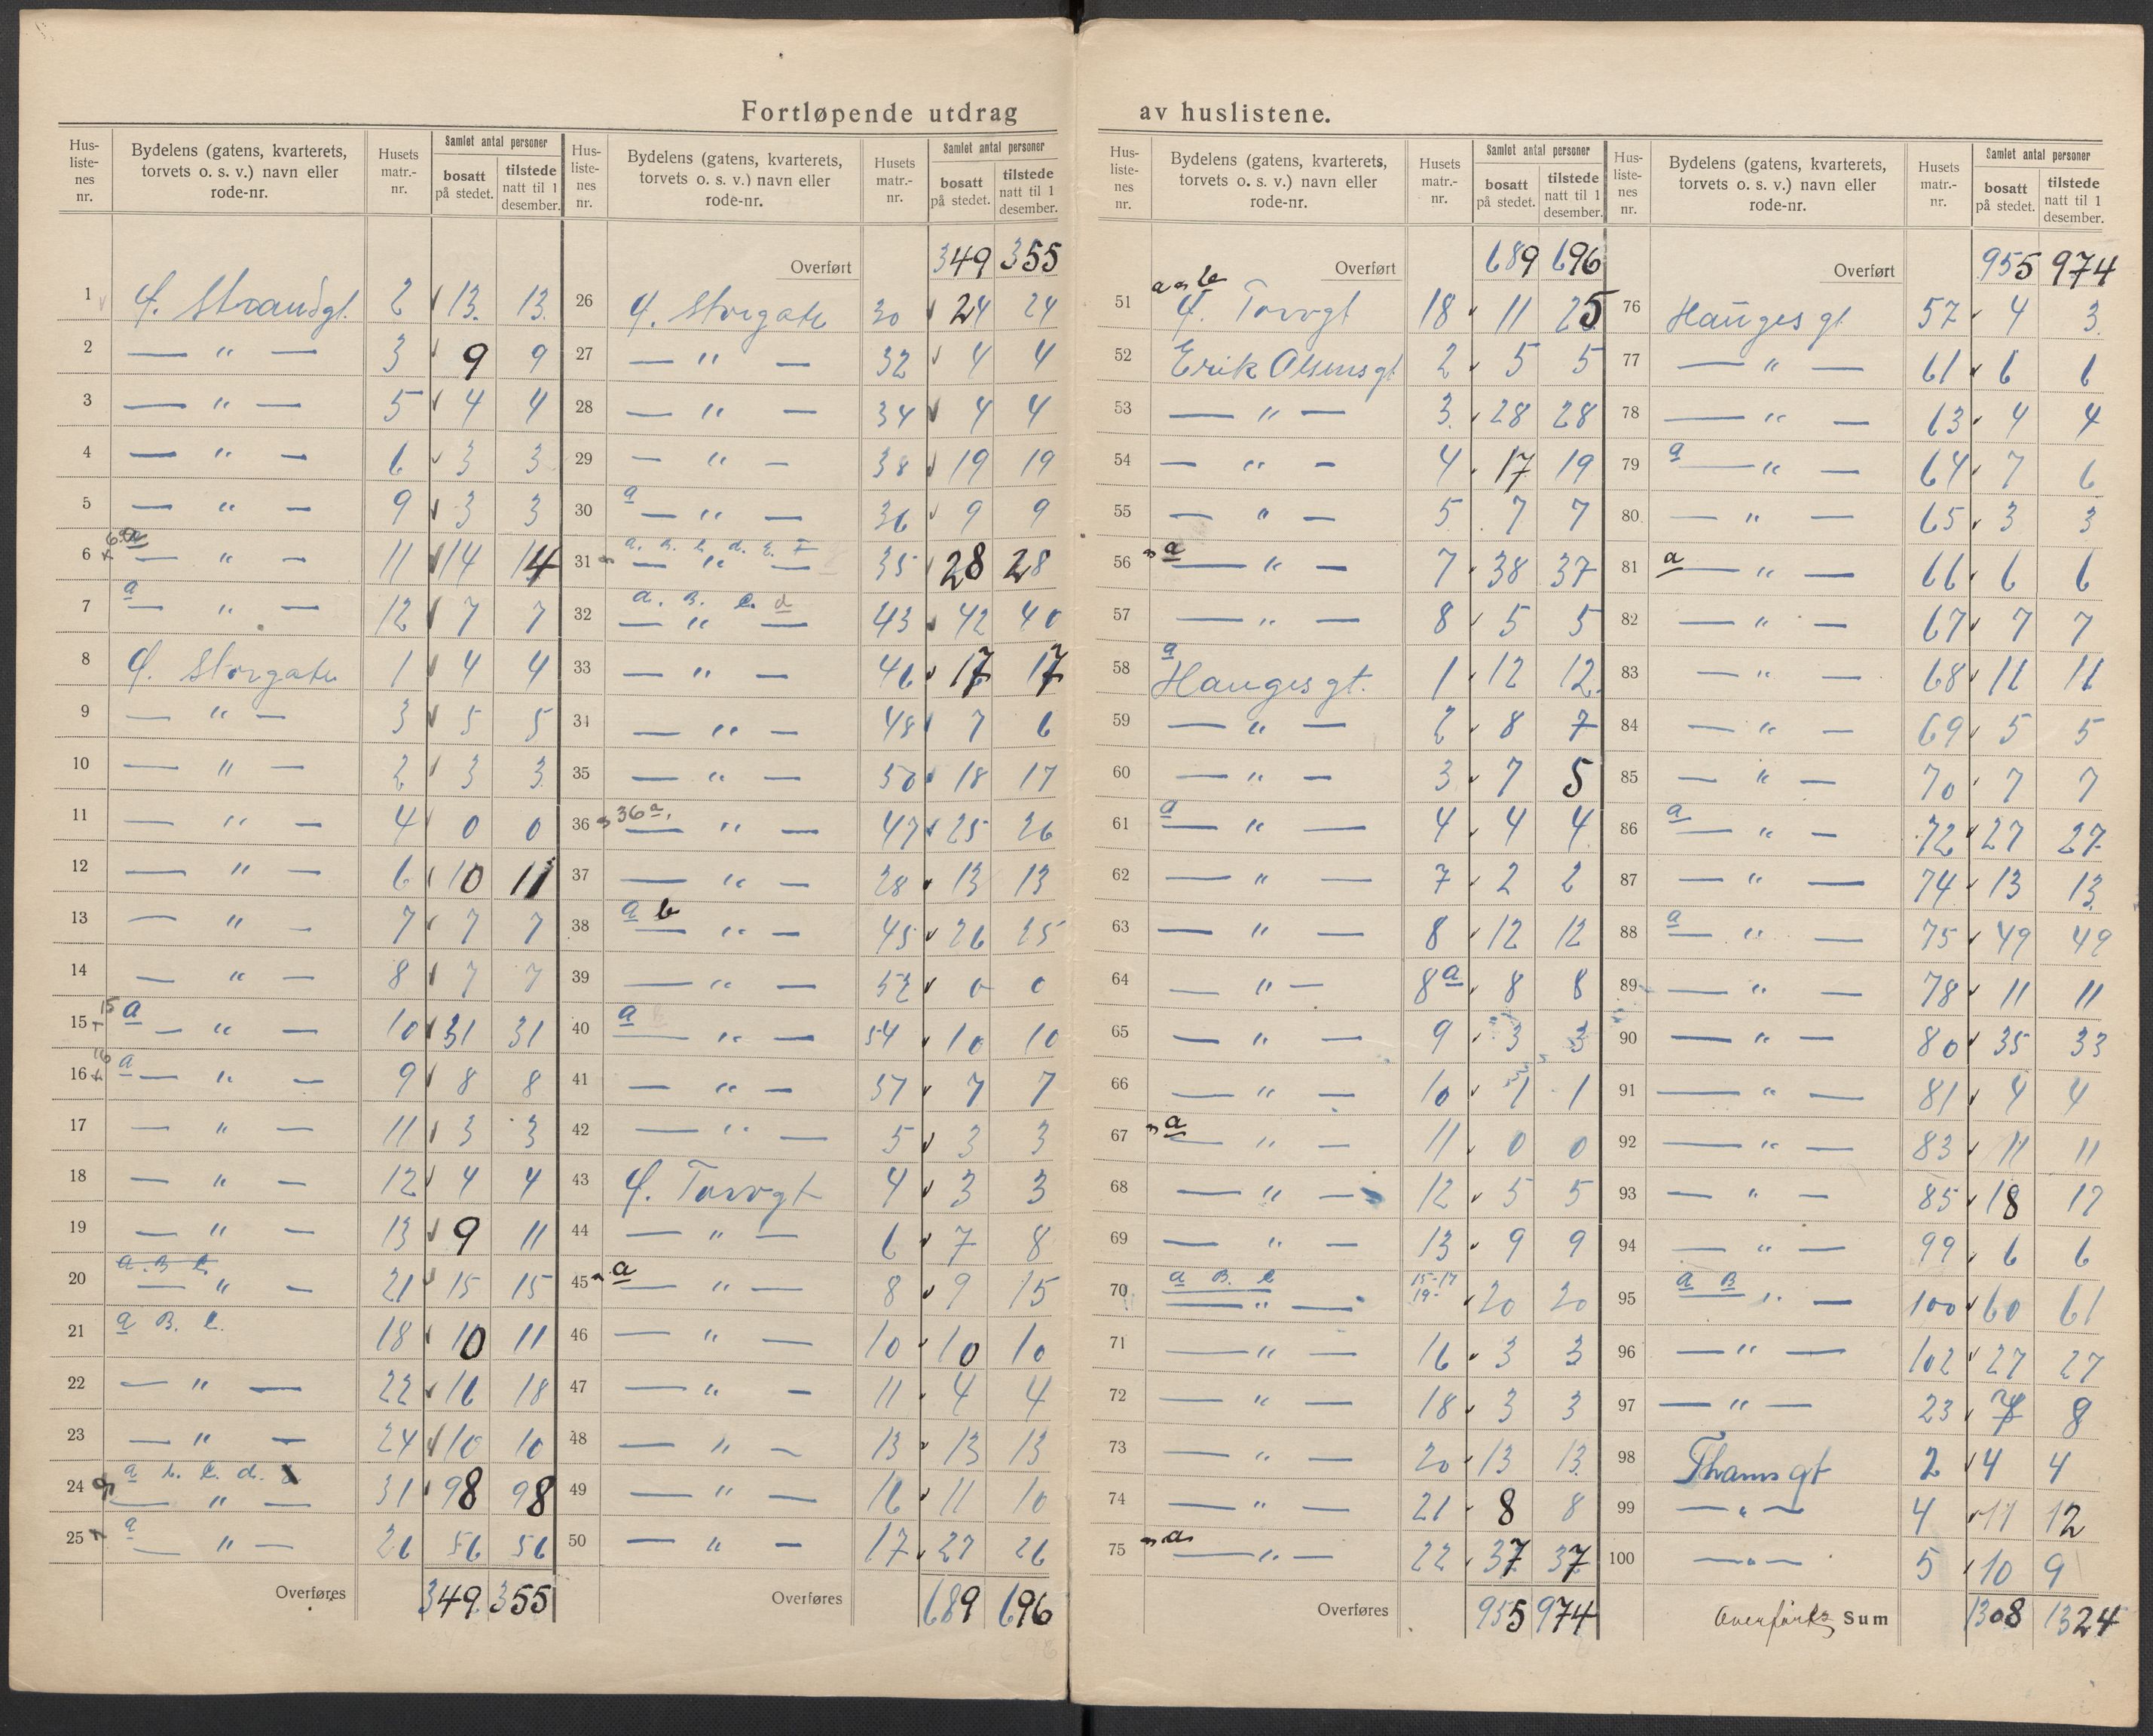 Fortløpende utdrag av huslistene.
Hus-liste-nes nr. | Bydelens (gatens, kvarterets, torvets o. s. v.) navn eller rode-nr. | Husets matr.-nr. | Samlet antal personer bosatt på stedet. | tilstede natt til 1 desember.
1 Ø. Strandgt. 2 13. 13.
2 — " — 3 9 9
3 — " — 5 4 4
4 — " — 6 3 3
5 — " — 9 3 3
6 6a — " — 11 14 14
7 a — " — 12 7 7
8 Ø. Storgate 1 4 4
9 — " — 3 5 5
10 — " — 2 3 3
11 — " — 4 0 0
12 — " — 6 10 11
13 — " — 7 7 7
14 — " — 8 7 7
15 15 a — " — 10 31 31
16 16 a — " — 9 8 8
17 — " — 11 3 3
18 — " — 12 4 4
19 — " — 13 9 11
20 a. B. C. — " — 21 15 15
21 a B. C. 18 10 11
22 — " — 22 16 18
23 — " — 24 10 10
24 a b. C. d. — " — 31 98 98
25 a — " — 26 56 56
Overføres 349 355
Hus-liste-nes nr. | Bydelens (gatens, kvarterets, torvets o. s. v.) navn eller rode-nr. | Husets matr.-nr. | Samlet antal personer bosatt på stedet. | tilstede natt til 1 desember.
Overført 349 355
26 Ø. Storgate 30 24 24
27 — " — 32 4 4
28 — " — 34 4 4
29 — " — 38 19 19
30 a — " — 36 9 9
31 a. B. C. d. E. F — " — 35 28 28
32 a. B. C. d — " — 43 42 40
33 — " — 46 17 17
34 — " — 48 7 6
35 — " — 50 18 17
36 36a. — " — 47 25 26
37 — " — 28 13 13
38 a b — " — 45 26 25
39 — " — 52 0 0
40 a — " — 54 10 10
41 — " — 37 7 7
42 — " — 5 3 3
43 Ø. Torvgt 4 3 3
44 — " — 6 7 8
45 a — " — 8 9 15
46 — " — 10 10 10
47 — " — 11 4 4
48 — " — 13 13 13
49 — " — 16 11 10
50 — " — 17 27 26
Overføres 689 696
Hus-liste-nes nr. | Bydelens (gatens, kvarterets, torvets o. s. v.) navn eller rode-nr. | Husets matr.-nr. | Samlet antal personer bosatt på stedet. | tilstede natt til 1 desember.
Overført 689 696
51 a og b Ø. Torvgt 18 11 25
52 Erik Olsensgt 2 5 5
53 — " — 3. 28 28
54 — " — 4 17 19
55 — " — 5 7 7
56 a — " — 7 38 37
57 — " — 8 5 5
58 a Hauges gt. 1 12 12
59 — " — 2 8 7
60 — " — 3 7 5
61 a — " — 4 4 4
62 — " — 7 2 2
63 — " — 8 12 12
64 — " — 8a 8 8
65 — " — 9 3 3
66 — " — 10 1 1
67 a — " — 11 0 0
68 — " — 12 5 5
69 — " — 13 9 9
70 a B. C — " — 15-17 19- 20 20
71 — " — 16 3 3
72 — " — 18 3 3
73 — " — 20 13 13
74 — " — 21 8 8
75 a — " — 22 37 37
Overføres 955 974
Hus-liste-nes nr. | Bydelens (gatens, kvarterets, torvets o. s. v.) navn eller rode-nr. | Husets matr.-nr. | Samlet antal personer bosatt på stedet. | tilstede natt til 1 desember.
Overført 955 974
76 Hauges gt 57 4 3
77 — " — 61 6 6
78 — " — 63 4 4
79 a — " — 64 7 6
80 — " — 65 3 3
81 a — " — 66 6 6
82 — " — 67 7 7
83 — " — 68 11 11
84 — " — 69 5 5
85 — " — 70 7 7
86 a — " — 72 27 27
87 — " — 74 13 13
88 a — " — 75 49 49
89 — " — 78 11 11
90 — " — 80 35 33
91 — " — 81 4 4
92 — " — 83 11 11
93 — " — 85 18 17
94 — " — 99 6 6
95 a B — " — 100 60 61
96 — " — 102 27 27
97 — " — 23 8
98 Thamsgt 2 4 4
99 — " — 4 11 12
100 — " — 5 10 9
Overføres Sum 1308 1324